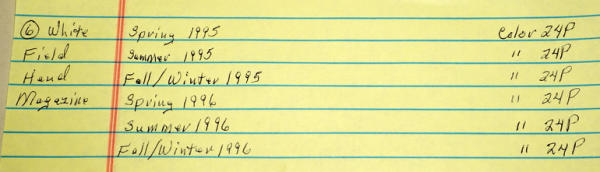 ⑥ White Spring 1995 Color 24P
Field Summer 1995 " 24P
Hand Fall/Winter 1995 " 24P
Magazine Spring 1996 " 24P
Summer 1996 " 24P
Fall/Winter 1996 " 24P